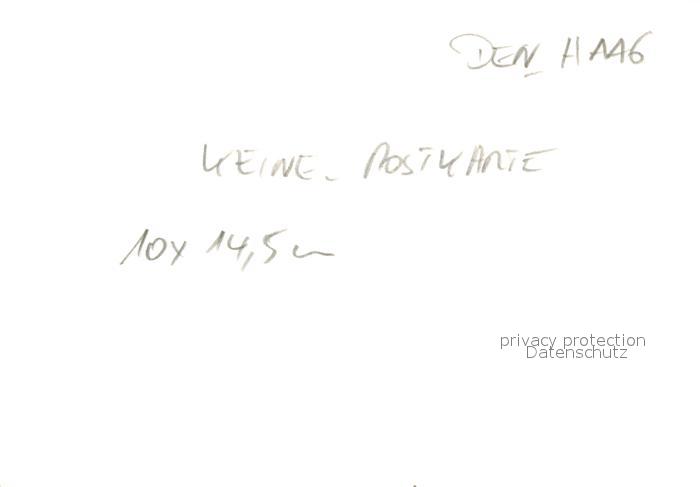 DEN HAAG
KEINE - POSTKARTE
10x 14,5 cm
privacy protection
Datenschutz